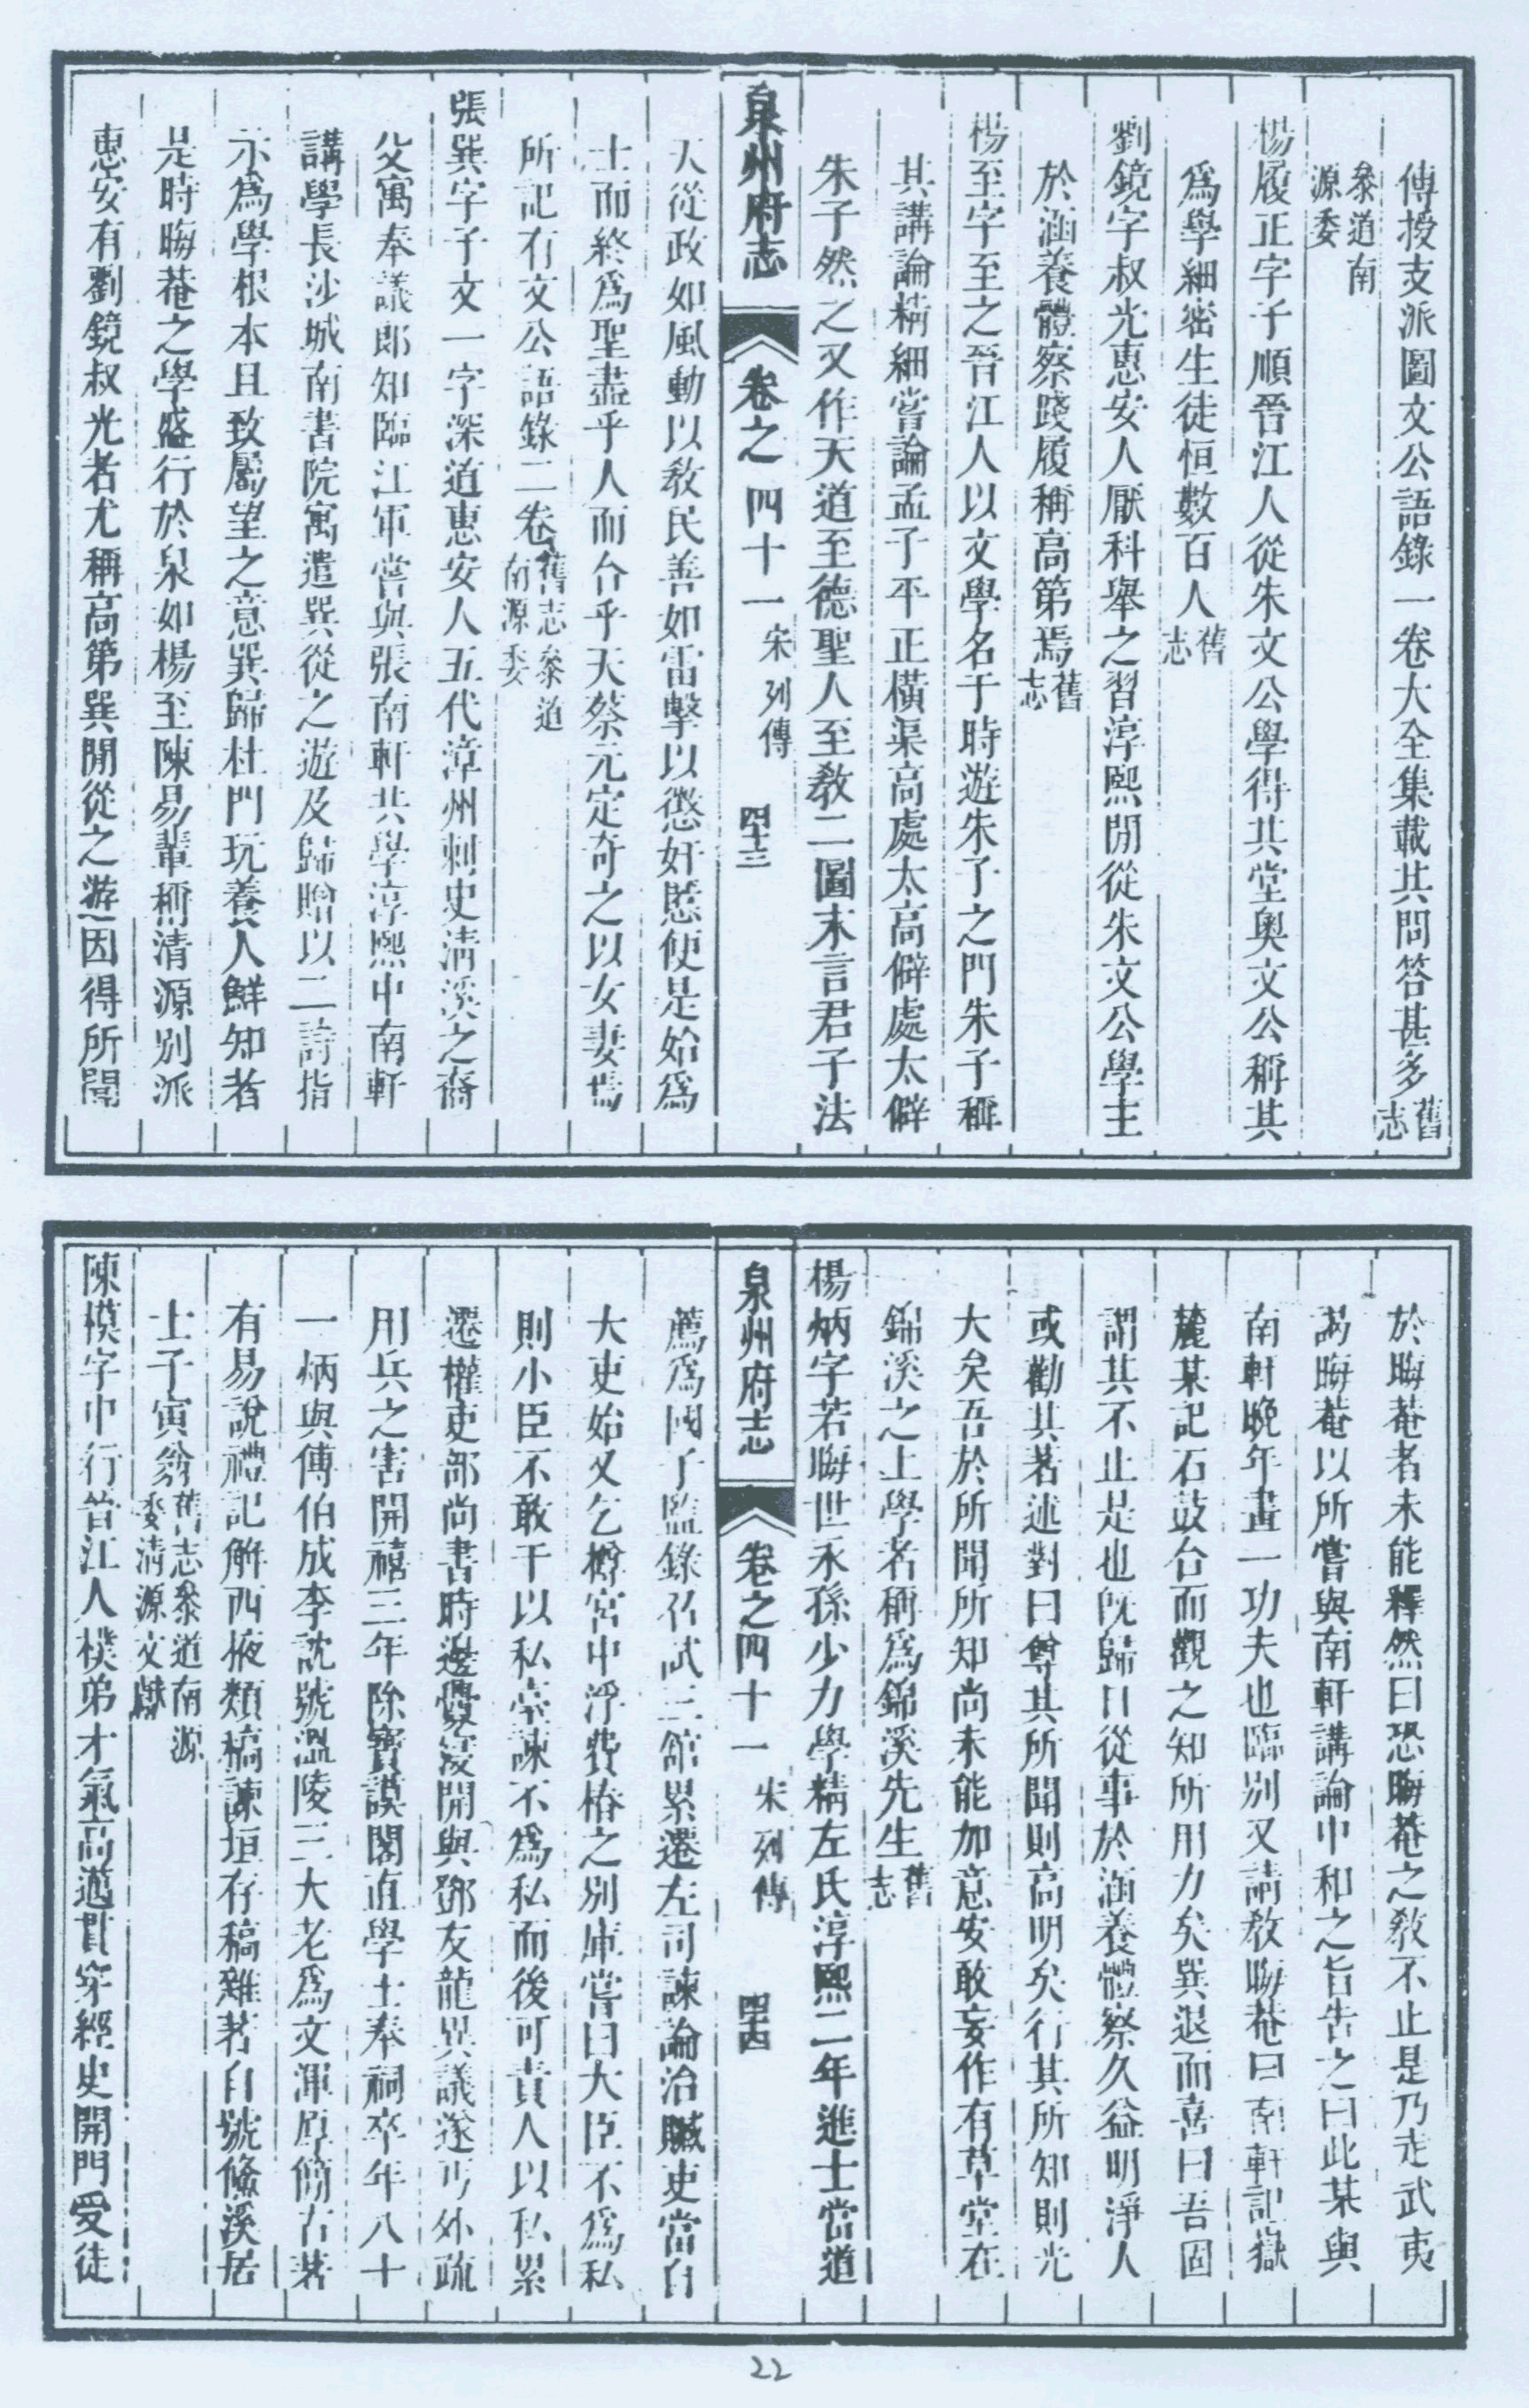 傳授支派圖文公語錄一卷大全集載其問答甚多舊志
叅道南源委
楊履正字子順晉江人從朱文公學得其堂奧文公稱其
爲學細密生徒恒數百人舊志
劉鏡字叔光惠安人厭科舉之習淳熙間從朱文公學主
於涵養體察踐履稱高第焉舊志
楊至字至之晉江人以文學名于時遊朱子之門朱子稱
其講論精細嘗論孟子平正橫渠高處太高僻處太僻
朱子然之又作天道至德聖人至教二圖末言君子法
泉州府志 卷之四十一 宋列傳 四十三
天從政如風動以敎民善如雷擊以懲奸慝使是始爲
士而終爲聖盡乎人而合乎天蔡元定奇之以女妻焉
所記有文公語錄二卷舊志叅道南源委
張巽字子文一字深道惠安人五代漳州刺史清溪之裔
父寓奉議郎知臨江軍嘗與張南軒共學淳熙中南軒
講學長沙城南書院寓遣巽從之遊及歸贈以二詩指
示爲學根本且致屬望之意巽歸杜門玩養人鮮知者
是時晦菴之學盛行於泉如楊至陳易輩稱清源別派
惠安有劉鏡叔光者尤稱高第巽聞從之游因得所聞
於晦菴者未能釋然曰恐晦菴之敎不止是乃走武夷
謁晦菴以所嘗與南軒講論中和之旨告之曰此某與
南軒晚年畫一功夫也臨別又請敎晦菴曰南軒記嶽
麓某記石鼓合而觀之知所用力矣巽退而喜曰吾固
謂其不止是也旣歸日從事於涵養體察久益明淨人
或勸其著述對曰尊其所聞則高明矣行其所知則光
大矣吾於所聞所知尚未能加意安敢妄作有草堂在
錦溪之上學者稱爲錦溪先生舊志
楊炳字若晦世永孫少力學精左氏淳熙二年進士當道
泉州府志 卷之四十一 宋列傳 四十四
薦爲國子監錄召試三舘累遷左司諫論治贓吏當自
大吏始又乞樽宮中浮費樁之別庫嘗曰大臣不爲私
則小臣不敢干以私臺諫不爲私而後可責人以私累
遷權吏部尚書時邊釁寖開與鄧友龍異議遂丐外疏
用兵之害開禧三年除寶謨閣直學士奉祠卒年八十
一炳與傅伯成李訦號溫陵三大老爲文渾厚簡古著
有易說禮記解西掖類稿諫垣存稿雜著自號翛溪居
士子寅翁舊志叅道南源委淸源文獻
陳模字中行晉江人樸弟才氣高邁貫穿經史開門受徒
22